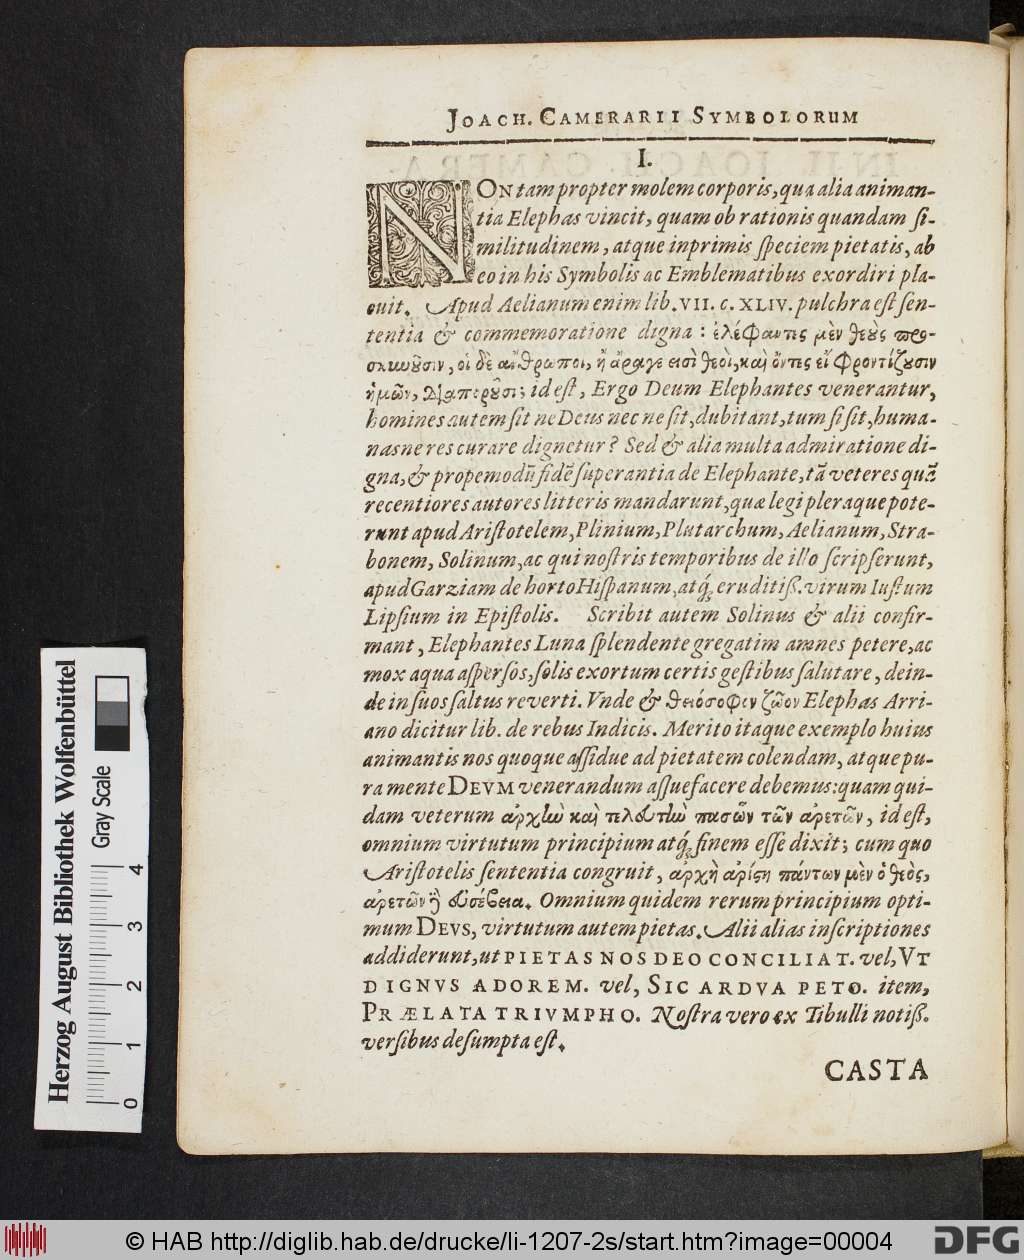 JOACH. CAMERARII SYMBOLORUM
I.
NON tam propter molem corporis, qua alia animan-
tia Elephas vincit, quam ob rationis quandam si-
militudinem, atque inprimis speciem pietatis, ab
eo in his Symbolis ac Emblematibus exordiri pla-
cuit. Apud Aelianum enim lib. VII. c. XLIV. pulchra est sen-
tentia & commemoratione digna: ἐλέφαντες μὲν θεοὺς προ-
σκυνοῦσιν, οἱ δὲ ἄνθρωποι, ἢ ἄραγε εἰσὶ θεοὶ, καὶ ὄντες εἰ φροντίζουσιν
ἡμῶν, διαποροῦσι; id est, Ergo Deum Elephantes venerantur,
homines autem sit ne Deus nec ne sit, dubitant, tum si sit, huma-
nasne res curare dignetur? Sed & alia multa admiratione di-
gna, & propemodũ fidẽ superantia de Elephante, tã veteres quã
recentiores autores litteris mandarunt, quæ legi pleraque pote-
runt apud Aristotelem, Plinium, Plutarchum, Aelianum, Stra-
bonem, Solinum, ac qui nostris temporibus de illo scripserunt,
apud Garziam de horto Hispanum, atq́; eruditiß. virum Iustum
Lipsium in Epistolis. Scribit autem Solinus & alii confir-
mant, Elephantes Luna splendente gregatim amnes petere, ac
mox aqua aspersos, solis exortum certis gestibus salutare, dein-
de in suos saltus reverti. Vnde & θειόσοφιν ζῶον Elephas Arri-
ano dicitur lib. de rebus Indicis. Merito itaque exemplo huius
animantis nos quoque assidue ad pietatem colendam, atque pu-
ra mente DEVM venerandum assuefacere debemus: quam qui-
dam veterum ἀρχὴν καὶ τελευτὴν πασῶν τῶν ἀρετῶν, id est,
omnium virtutum principium atq́; finem esse dixit; cum quo
Aristotelis sententia congruit, ἀρχὴ ἀρίστη πάντων μὲν ὁ θεὸς,
ἀρετῶν δὲ εὐσέβεια. Omnium quidem rerum principium opti-
mum DEVS, virtutum autem pietas. Alii alias inscriptiones
addiderunt, ut PIETAS NOS DEO CONCILIAT. vel, VT
DIGNVS ADOREM. vel, SIC ARDVA PETO. item,
PRÆLATA TRIVMPHO. Nostra vero ex Tibulli notiß.
versibus desumpta est.
CASTA
Herzog August Bibliothek Wolfenbüttel
Gray Scale
0 1 2 3 4
© HAB http://diglib.hab.de/drucke/li-1207-2s/start.htm?image=00004
DFG